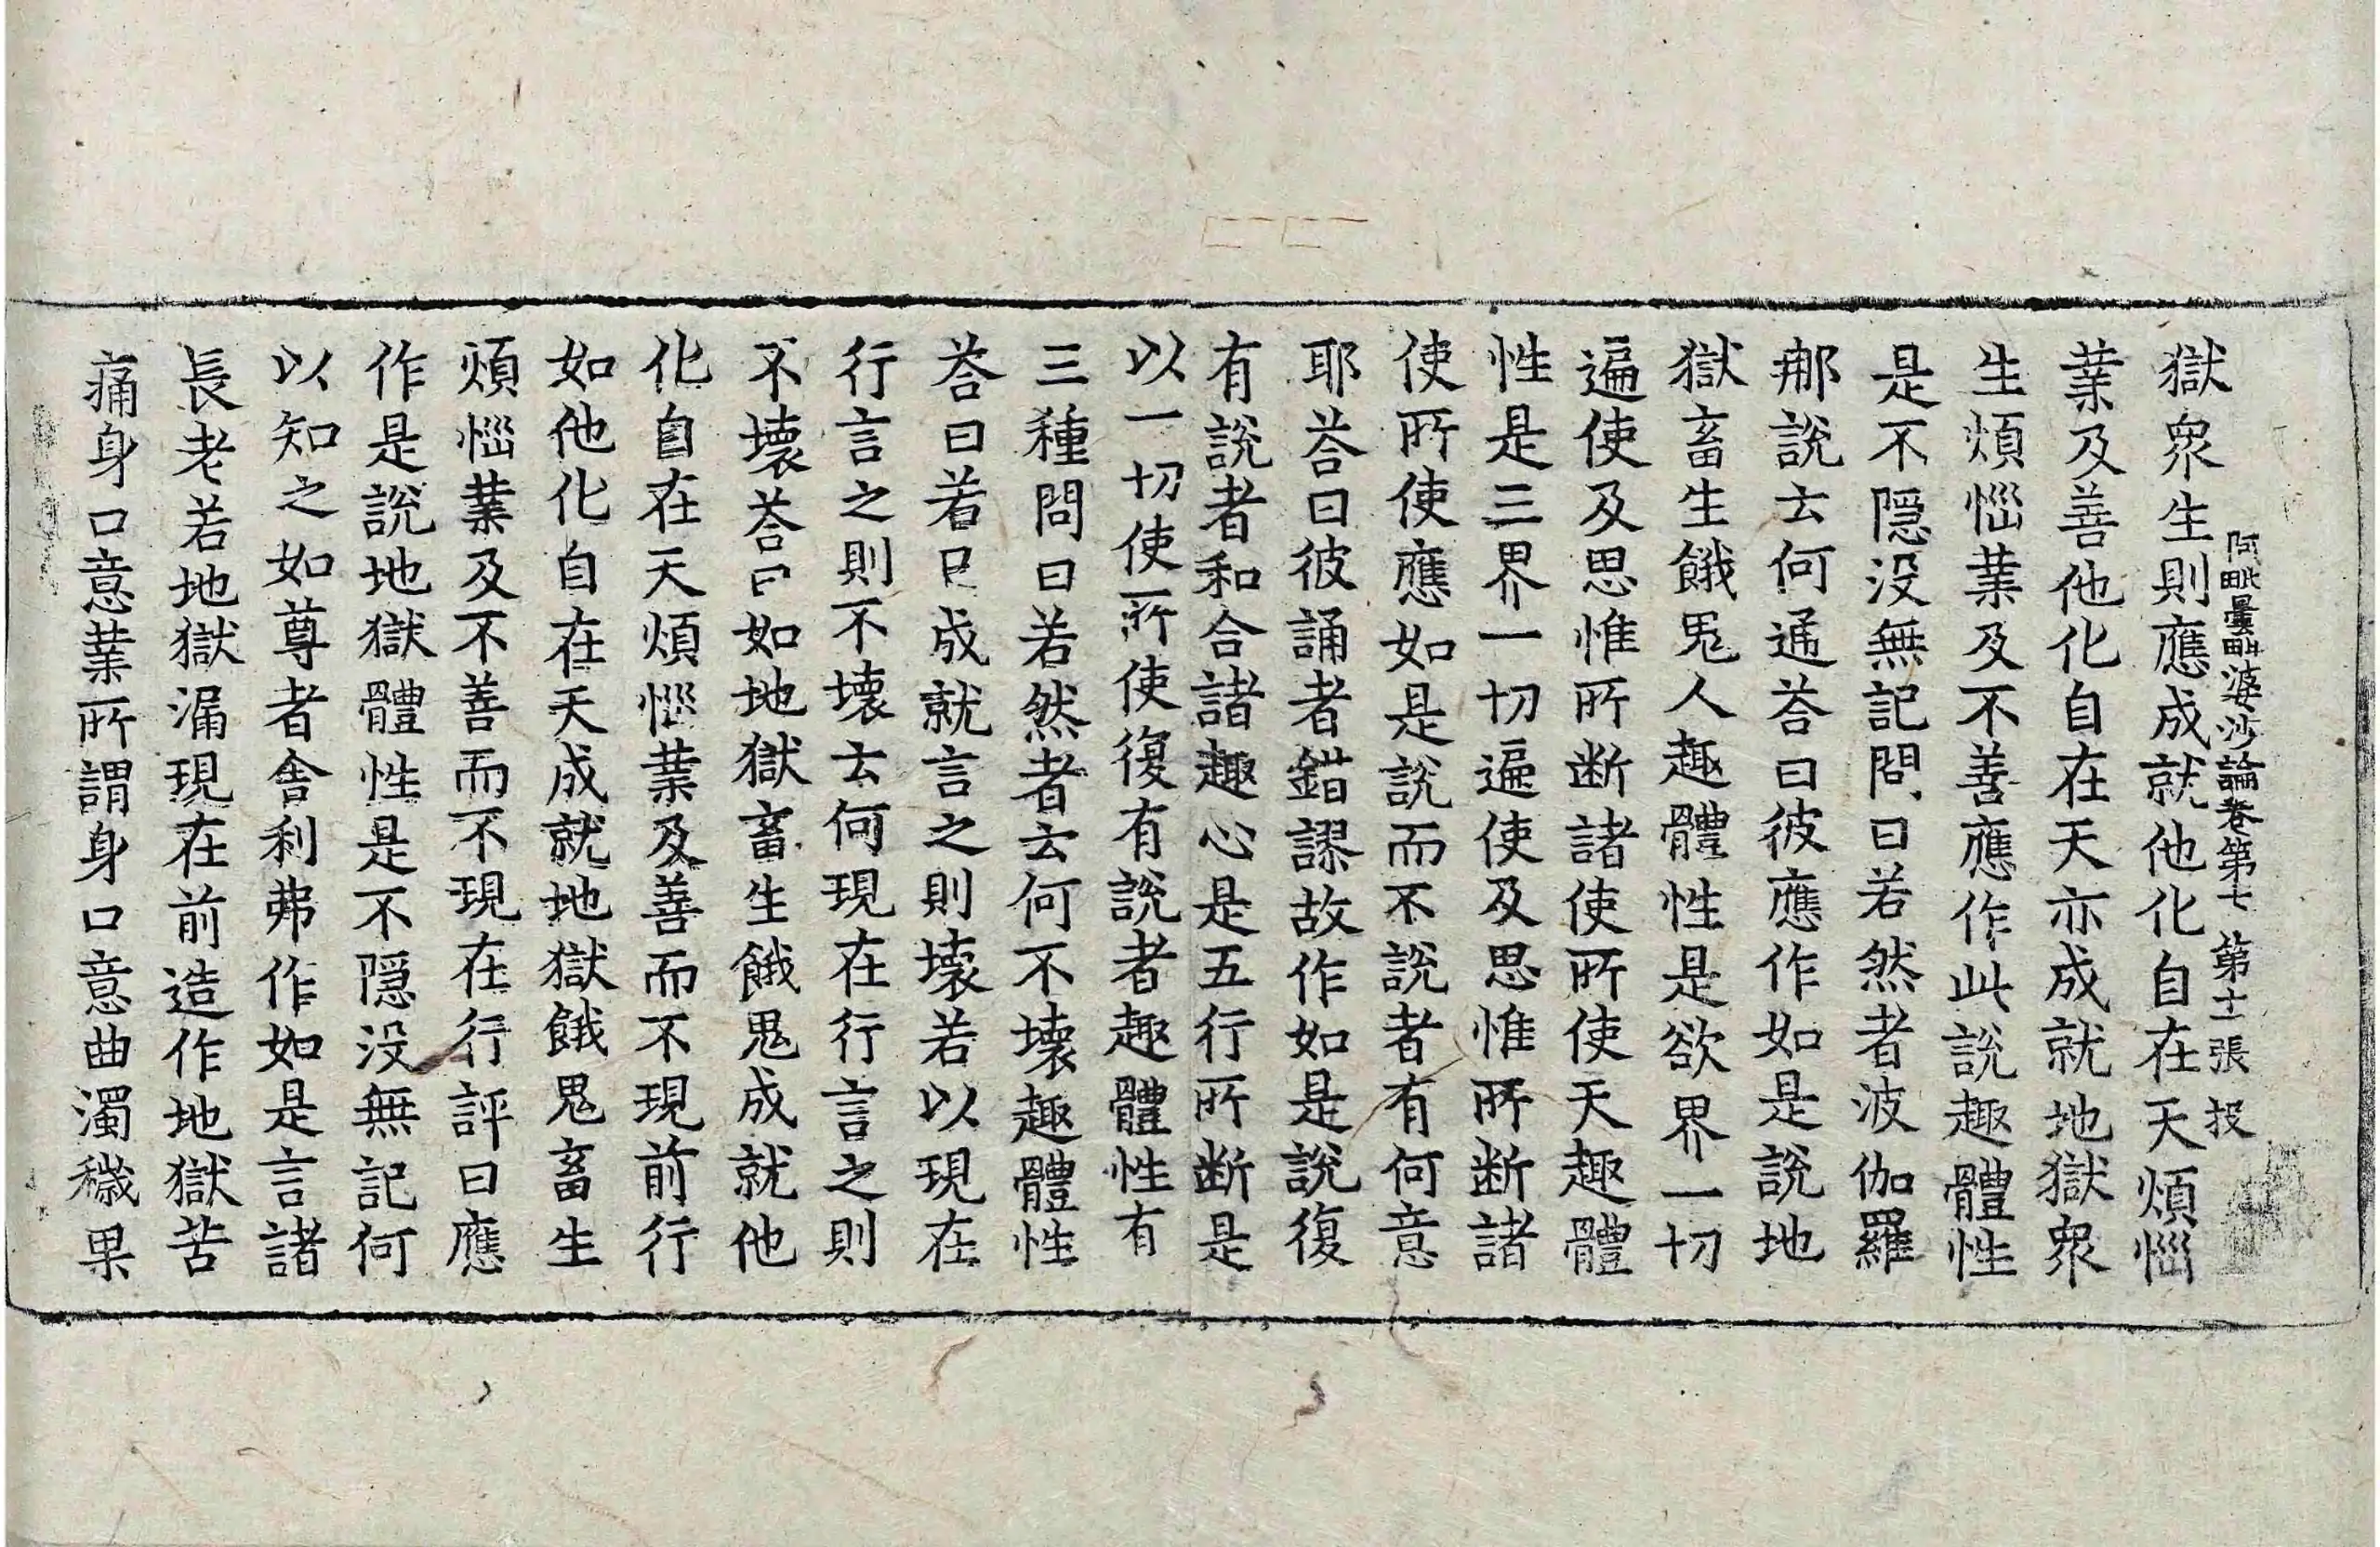 阿毗曇毗婆沙論卷第七 第十一張 投
獄衆生則應成就他化自在天煩惱
業及善他化自在天亦成就地獄衆
生煩惱業及不善應作此說趣體性
是不隱没無記問曰若然者波伽羅
那說云何通荅曰彼應作如是說地
獄畜生餓鬼人趣體性是欲界一切
遍使及思惟所斷諸使所使天趣體
性是三界一切遍使及思惟所斷諸
使所使應如是說而不說者有何意
耶荅曰彼誦者錯謬故作如是說復
有說者和合諸趣心是五行所斷是
以一切使所使復有說者趣體性有
三種問曰若然者云何不壞趣體性
荅曰若以成就言之則壞若以現在
行言之則不壞云何現在行言之則
不壞荅曰如地獄畜生餓鬼成就他
化自在天煩惱業及善而不現前行
如他化自在天成就地獄餓鬼畜生
煩惱業及不善而不現在行評曰應
作是說地獄體性是不隱没無記何
以知之如尊者舍利弗作如是言諸
長老若地獄漏現在前造作地獄苦
痛身口意業所謂身口意曲濁穢果